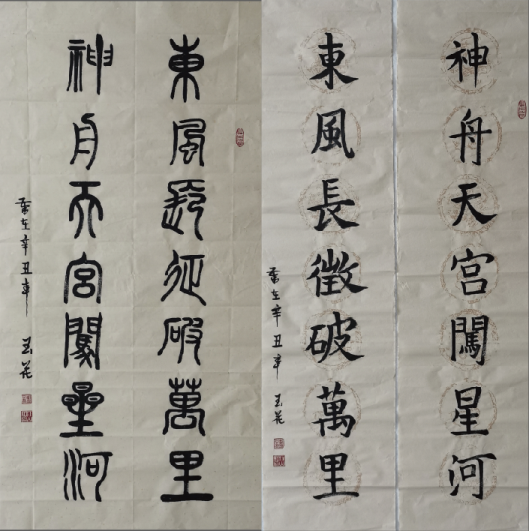 東風長征破萬里
神舟天宮闖星河
歲在辛丑年
神舟天宮闖星河
東風長徵破萬里
歲在辛丑年